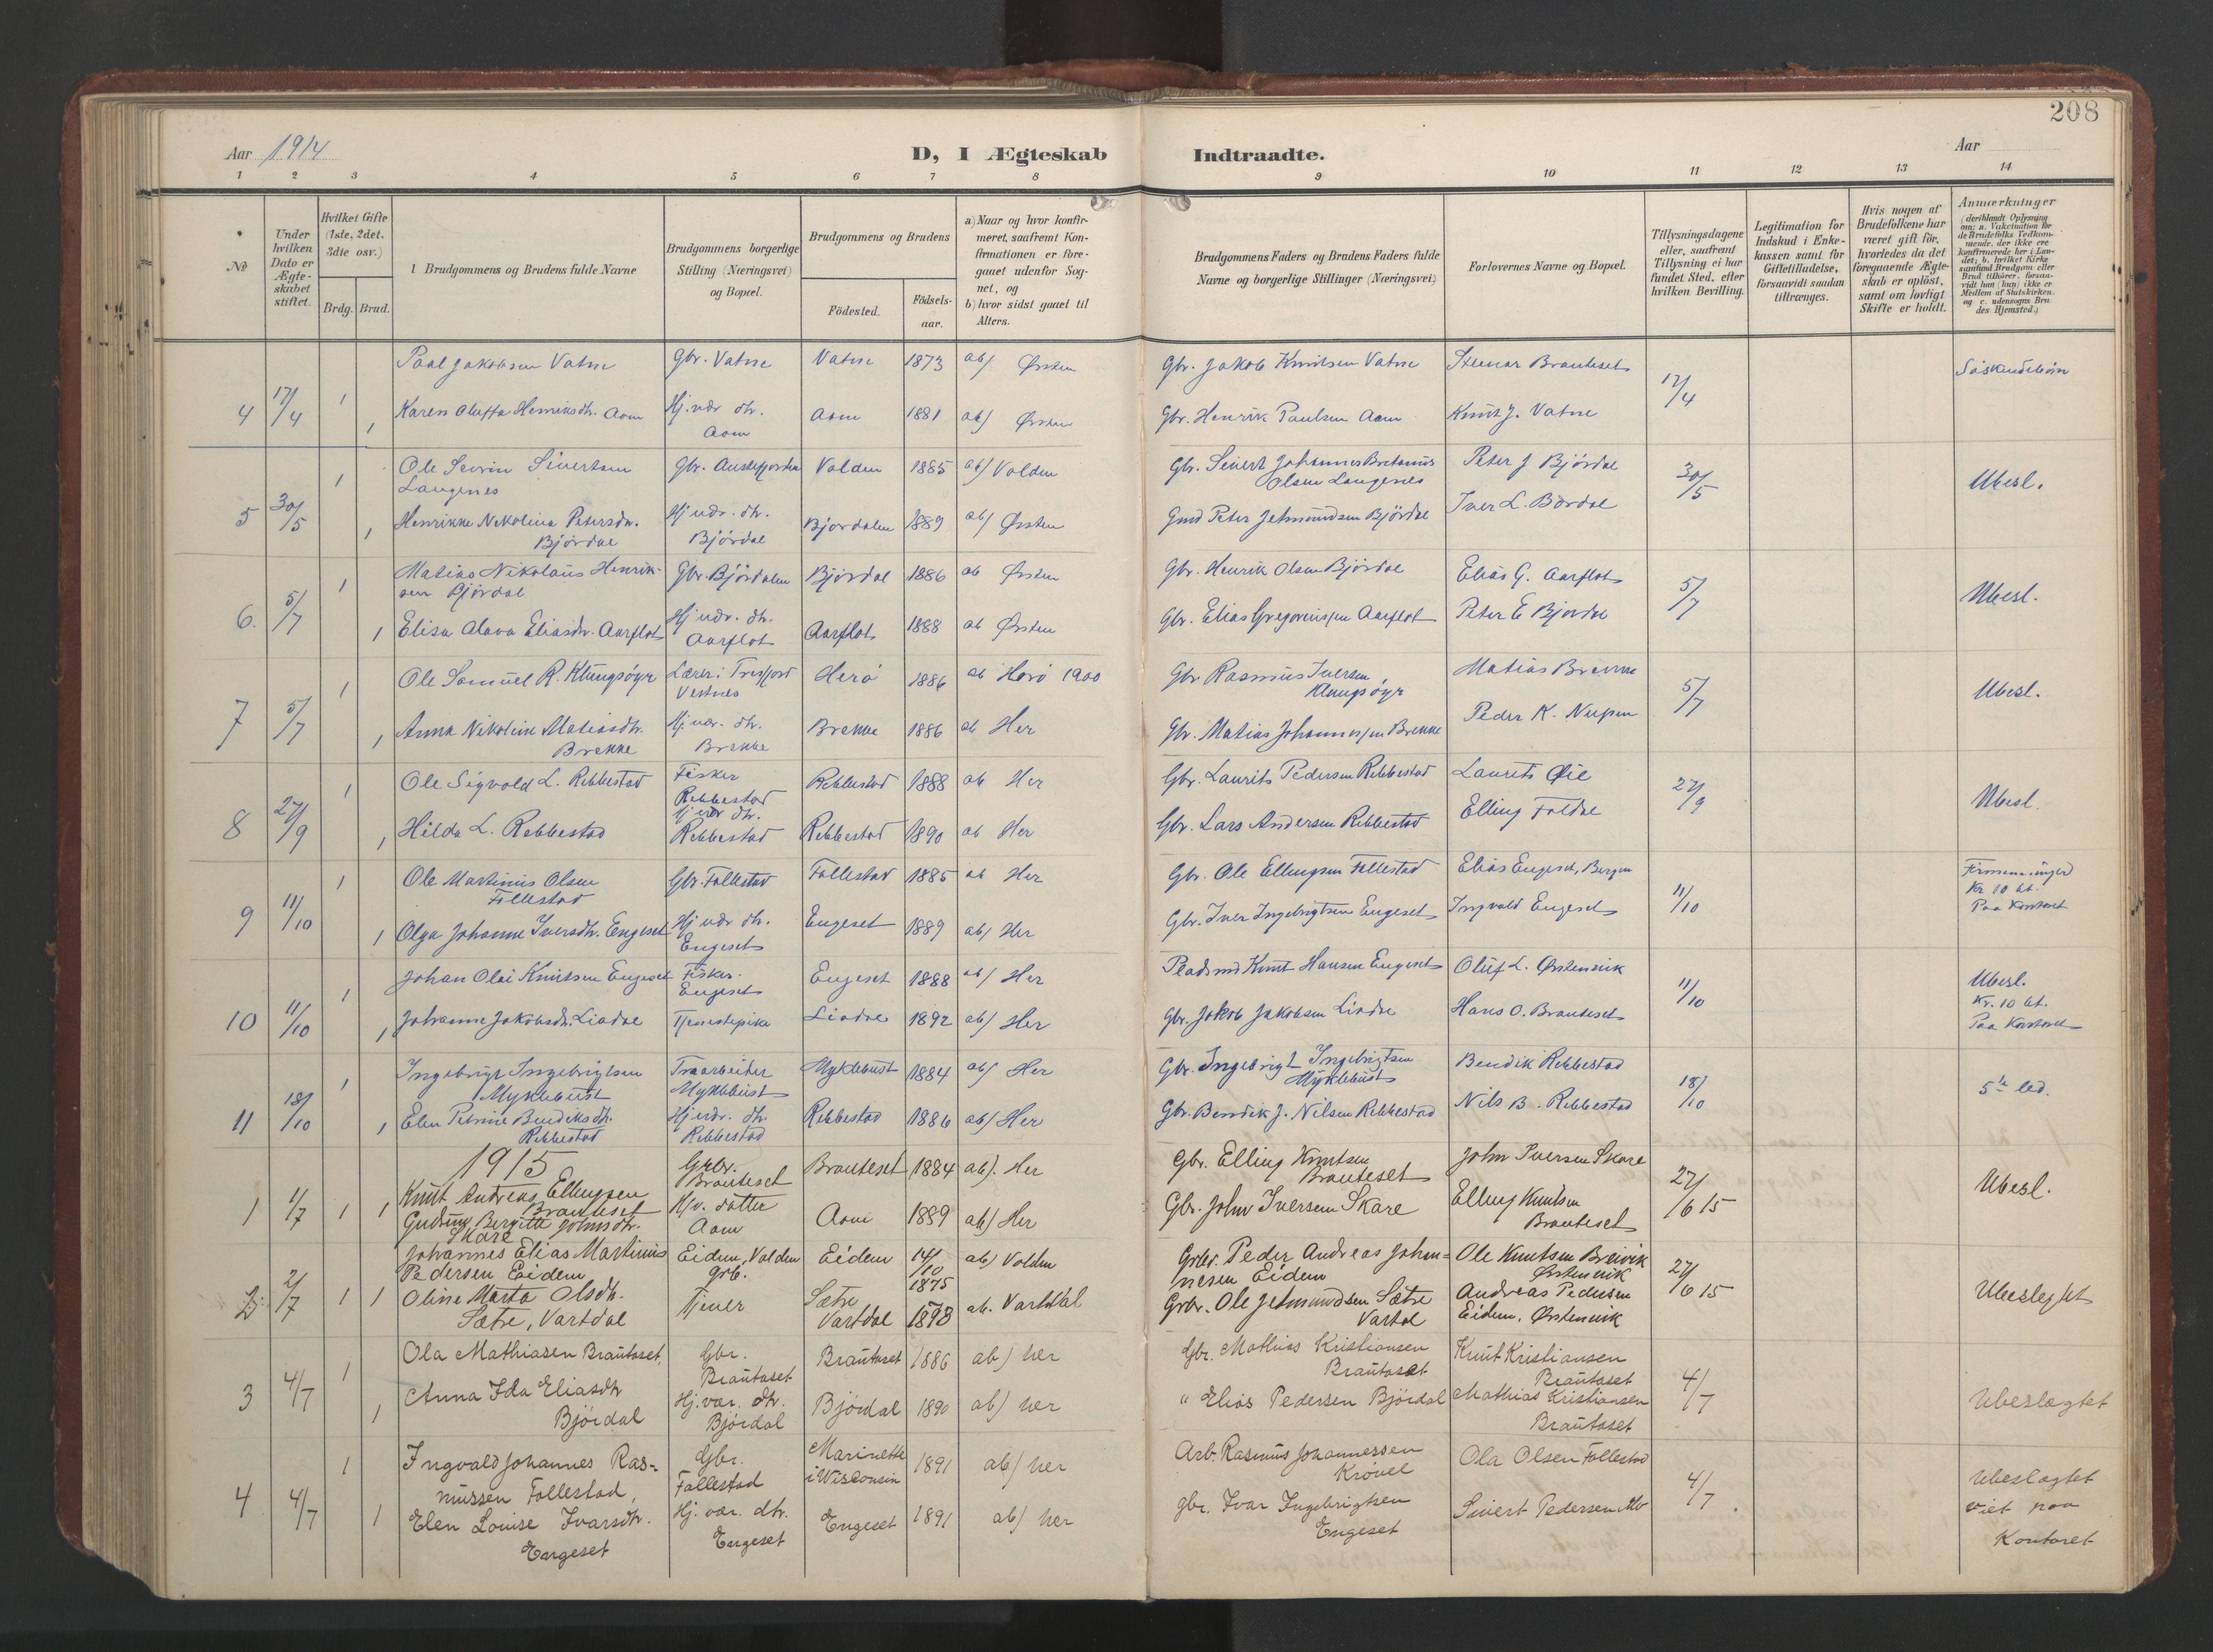 208
Aar 1914
D, I Ægteskab Indtraadte.
Aar
1 2 3 4 5 6 7 8 9 10 11 12 13 14
No
Under hvilken Dato er Ægteskabet stiftet.
Hvilket Gifte (1ste, 2det, 3die osv.)
Brdg. Brud.
Brudgommens og Brudens fulde Navne
Brudgommens borgerlige Stilling (Næringsvei) og Bopæl.
Brudgommens og Brudens
Födested.
Födselsaar.
a) Naar og hvor konfirmeret, saafremt Konfirmationen er foregaaet udenfor Sognet, og
b) hvor sidst gaaet til Alters.
Brudgommens Faders og Brudens Faders fulde Navne og borgerlige Stillinger (Næringsvei)
Forlovernes Navne og Bopæl.
Tillysningsdagene eller, saafremt Tillysning ei har fundet Sted, efter hvilken Bevilling.
Legitimation for Indskud i Enkekassen samt for Giftetilladelse, forsaavidt saadan tiltrænges.
Hvis nogen af Brudefolkene har været gift för, hvorledes da det foregaaende Ægteskab er oplöst, samt om lovligt Skifte er holdt.
Anmærkninger
Paal Jakobsen Vatne Gbr. Vatne Vatne 1873 ab) Ørsten Gbr. Jakob Knutsen Vatne Steinar Brauteset 17/4 Söskendebörn
4 17/4 1 1 Karen Oluffa Henriksdtr. Aam Hj.vær dtr. Aam Aam 1881 ab) Ørsten Gbr. Henrik Paulsen Aam Knut J. Vatne
Ole Severin Sivertsen Langenes Gbr. Austefjorden Volden 1885 ab) Volden Gbr. Sivert Johannes Olsen Langenes Peter J Björdal 30/5 Ubesl.
5 30/5 1 1 Henrikke Nikolina Petersdtr. Björdal Hj vær. dtr. Björdal Bjordalen 1889 ab) Ørsten Gmd Peter Jetmundsen Björdal Iver L. Bördal
Matias Nikolaus Henriksen Björdal Gbr. Björdalen Björdal 1886 ab Ørsten Gbr. Henrik Olsen Björdal Elias G. Aarflot 5/7 Ubesl.
6. 5/7 1 1 Elisa Alava Eliasdtr. Aarflot Hj vær. dtr. Aarflot Aarflot 1888 ab Ørsten Gbr. Elias Gregoriussen Aarflot Peter E Bjordal
Ole Samuel R. Klungsöyr Lærer i Tresfjord Vestnes Herö 1886 ab Herö 1900 Gbr Rasmus Iversen Klungsöyr Matias Brekke 5/7 Ubesl.
7 5/7 1 1 Anna Nikoline Matiasdtr. Brekke Hj vær. dtr. Brekke Brekke 1886 ab Her Gbr. Matias Johannessen Brekke Peder K. Nupen
Ole Sigvald L. Rebbestad Fisker Rebbestad Rebbestad 1888 ab Her Gbr. Laurits Pedersen Rebbestad Laurits Øie 27/9 Ubesl.
8 27/9 1 1 Hilda L. Rebbestad Hj vær dtr. Rebbestad Rebbestad 1890 ab Her Gbr. Lars Andersen Rebbestad Elling Foldal
Ole Martinus Olsen Follestad Gbr. Follestad Follestad 1885 ab Her Gbr. Ole Ellingsen Follestad Elias Engeset, Bergen 11/10 Firmenninger Kr 10 bt. Paa Kontoret
9 11/10 1 1 Olga Johanne Iversdtr. Engeset Hj vær dtr. Engeset Engeset 1889 ab) Her Gbr. Iver Ingebrigtsen Engeset Ingvald Engeset
Johan Olai Knutsen Engeset Fisker. Engeset Engeset 1888 ab) Her Pladsmd Knut Hansen Engeset Oluf L. Ørstenvik 11/10 Ubesl. Kr. 10 bt. Paa Kontoret
10 11/10 1 1 Johanne Jakobsdtr. Liadal Tjenestepike Liadal 1892 ab) Her Gbr. Jakob Jakobsen Liadal Hans O. Brauteset
Ingebrigt Ingebrigtsen Myklebust Træarbeider Myklebust Myklebust 1884 ab) Her Gbr. Ingebrigt Ingebrigtsen Myklebust Bendik Rebbestad 18/10 5te led.
11 18/10 1 1 Elen Petrine Bendiksdtr. Rebbestad Hj vær. dtr. Rebbestad Rebbestad 1886 ab) Her Gbr. Bendik J. Nilsen Rebbestad Nils B. Rebbestad
1915
Knut Andreas Ellingsen Brauteset Grbr. Brauteset Brauteset 1884 ab). Her Gbr. Elling Knutsen Brauteset John Iversen Skare 27/6 15 Ubesl.
1 1/7 1 1 Gudrun Bergitte Johnsdtr. Skare Hjv. datter Aam Aam 1889 ab) Her Gbr. John Iversen Skare Elling Knutsen Brauteset
Johannes Elias Martinus Pedersen Eidem Eidem, Volden grb. Eidem 14/10 1875 ab) Volden Grbr. Peder Andreas Johannesen Eidem Ole Knutsen Breivik Ørstenvik 27/6 15 Ubeslegtet
2 2/7 1 1 Oline Marta Olsdtr. Sætre, Vartdal Tjener Sætre Vartdal 1893 ab. Vartdal Grbr. Ole Jetmundsen Sætre Vartdal Andreas Pedersen Eidem. Ørstenvik
Ola Mathiasen Brautaset, Gbr. Brautaset Brautaset 1886 ab) her Gbr. Mathias Kristiansen Brautaset Knut Kristiansen Brautaset 4/7 Ubeslagtet
3 4/7 1 1 Anna Ida Eliasdtr Björdal Hj. vær. dtr. Björdal Björdal 1890 ab) her " Elias Pedersen Björdal Mathias Kristiansen Brautaset
Ingvald Johannes Rasmussen Follestad, Gbr. Follestad Marinette i Wisconsin 1891 ab) her Arb. Rasmus Johannessen Krövel Ola Olsen Follestad 4/7 Ubeslagtet viet paa Kontoret
4 4/7 1 1 Elen Louise Ivarsdtr. Engeset Hj. vær. dtr. Engeset Engeset 1891 ab) her gbr. Ivar Ingebrigtsen Engeset Sivert Pedersen Mo